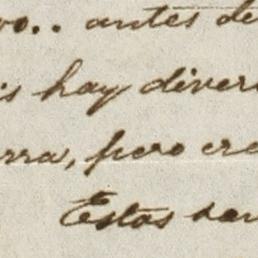 vo.. antes de
is hay diver
rra, pero cre
Estas san